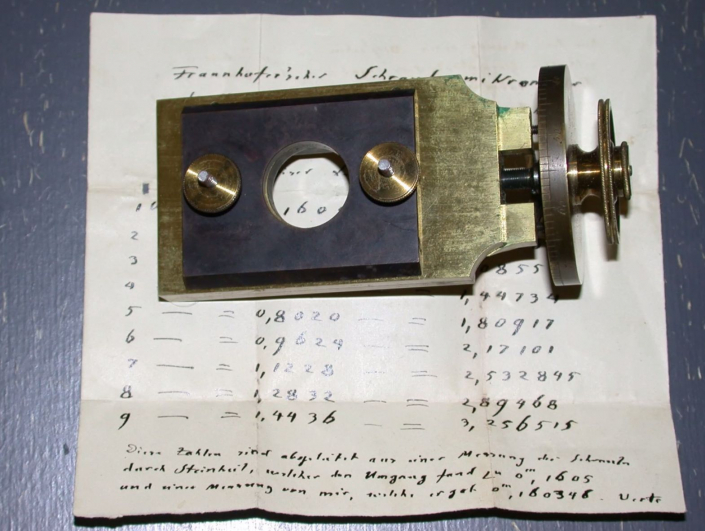 Fraunhofer'scher Schraubenmikrometer
160
2
3 855
4 1,44734
5 — = 0,8020 — = 1,80917
6 — = 0,9624 — = 2,17101
7 — = 1,1228 — = 2,532845
8 — = 1,2832 — = 2,89468
9 — = 1,4436 — = 3,256515
Diese Zahlen sind abgeleitet aus einer Messung der Schraube
durch Steinheil, welcher den Umgang fand zu 0m,1605
und einer Messung von mir, welche ergab 0m,160346. Verte